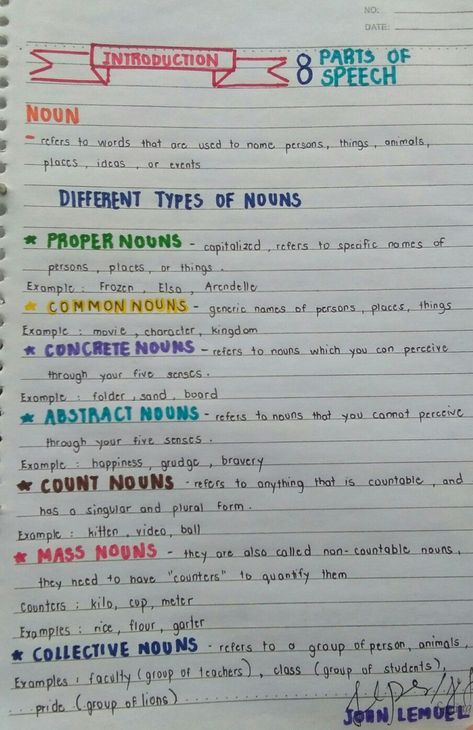 NO.:
DATE:
INTRODUCTION 8 PARTS OF
SPEECH
NOUN
- refers to words that are used to name persons, things, animals,
places, ideas, or events
DIFFERENT TYPES OF NOUNS
★ PROPER NOUNS - capitalized, refers to specific names of
persons, places, or things.
Example : Frozen, Elsa, Arendelle
★ COMMON NOUNS - generic names of persons, places, things
Example : movie, character, kingdom
★ CONCRETE NOUNS - refers to nouns which you can perceive
through your five senses.
Example : folder, sand, board
★ ABSTRACT NOUNS - refers to nouns that you cannot perceive
through your five senses.
Example : happiness, grudge, bravery
★ COUNT NOUNS - refers to anything that is countable, and
has a singular and plural form.
Example : kitten, video, ball
★ MASS NOUNS - they are also called non-countable nouns,
they need to have "counters" to quantify them
Counters : kilo, cup, meter
Examples : rice, flour, garter
★ COLLECTIVE NOUNS - refers to a group of person, animals,
Examples : faculty (group of teachers), class (group of students),
pride (group of lions)
JOHN LEMUEL